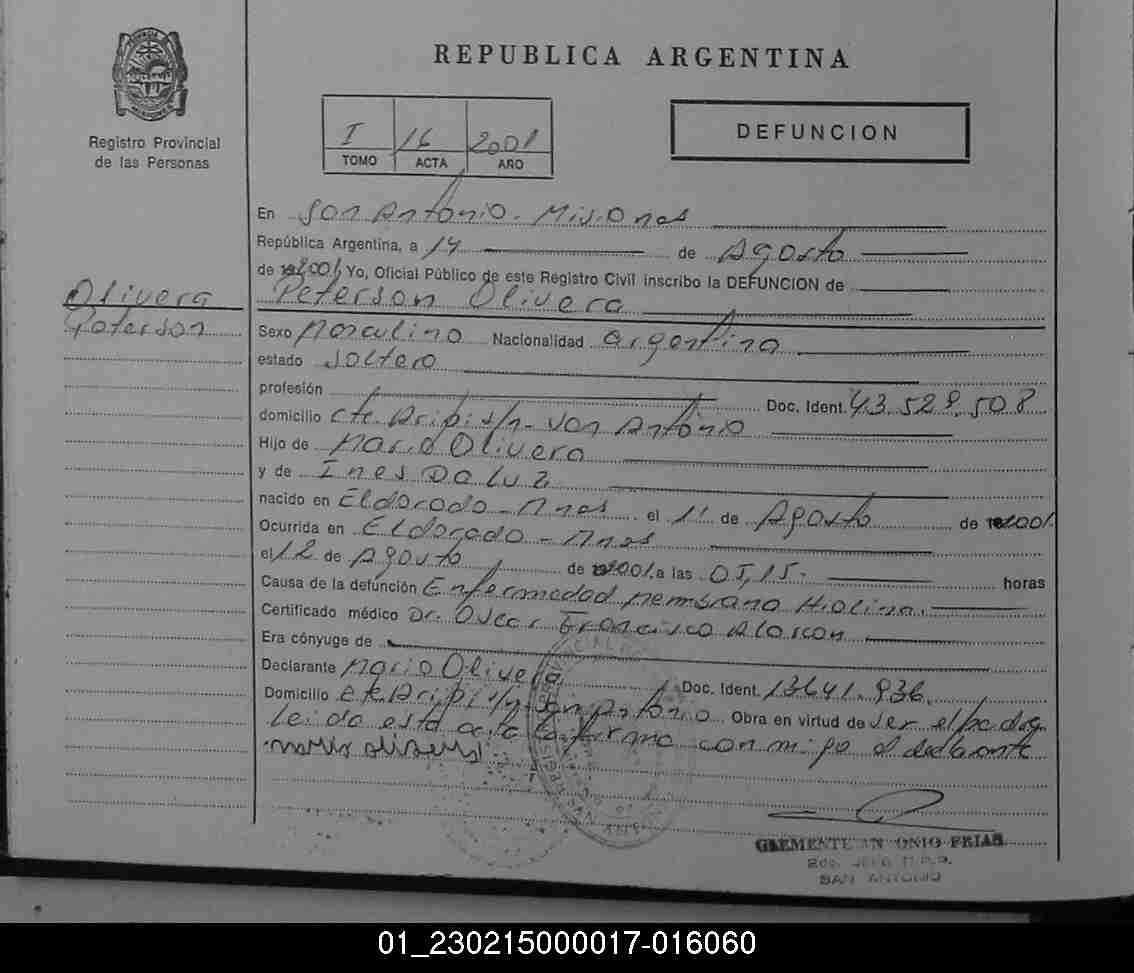 REPUBLICA ARGENTINA
Registro Provincial
de las Personas
I 16 2001
TOMO ACTA AÑO
DEFUNCION
En San Antonio - Misiones
República Argentina, a 14 de Agosto
de 2001 Yo, Oficial Público de este Registro Civil inscribo la DEFUNCION de
Olivera
Peterson
Peterson Olivera
Sexo Masculino Nacionalidad argentina
estado soltero
profesión Doc. Ident. 43.528.508
domicilio s/n - San Antonio
Hijo de Mario Olivera
y de Ines Da Luz
nacido en Eldorado - Mnes el 11 de Agosto de 2001
Ocurrida en Eldorado - Mnes
el 12 de Agosto de 2001 a las 05,15 - horas
Causa de la defunción Enfermedad Membrana Hialina
Certificado médico Dr. Oscar Francisco Alarcon
Era cónyuge de
Declarante Mario Olivera Doc. Ident. 13641.936.
Domicilio s/n - San Antonio Obra en virtud de ser el padre
leido esta acta la firma conmigo el declarante
Mario Olivera
CLEMENTE ANTONIO FRIAS
SAN ANTONIO
01_230215000017-016060